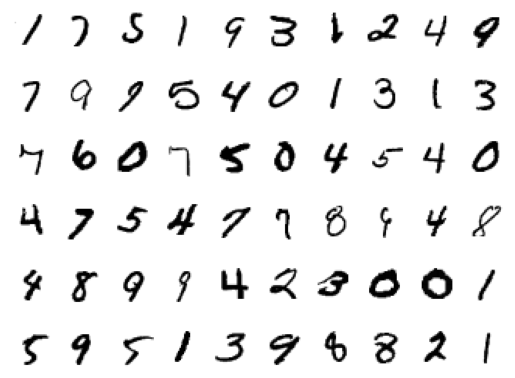 1 7 5 1 9 3 1 2 4 9
7 9 9 5 4 0 1 3 1 3
7 6 0 7 5 0 4 5 4 0
4 7 5 4 7 7 8 9 4 8
4 8 9 9 4 2 3 0 0 1
5 9 5 1 3 9 8 8 2 1